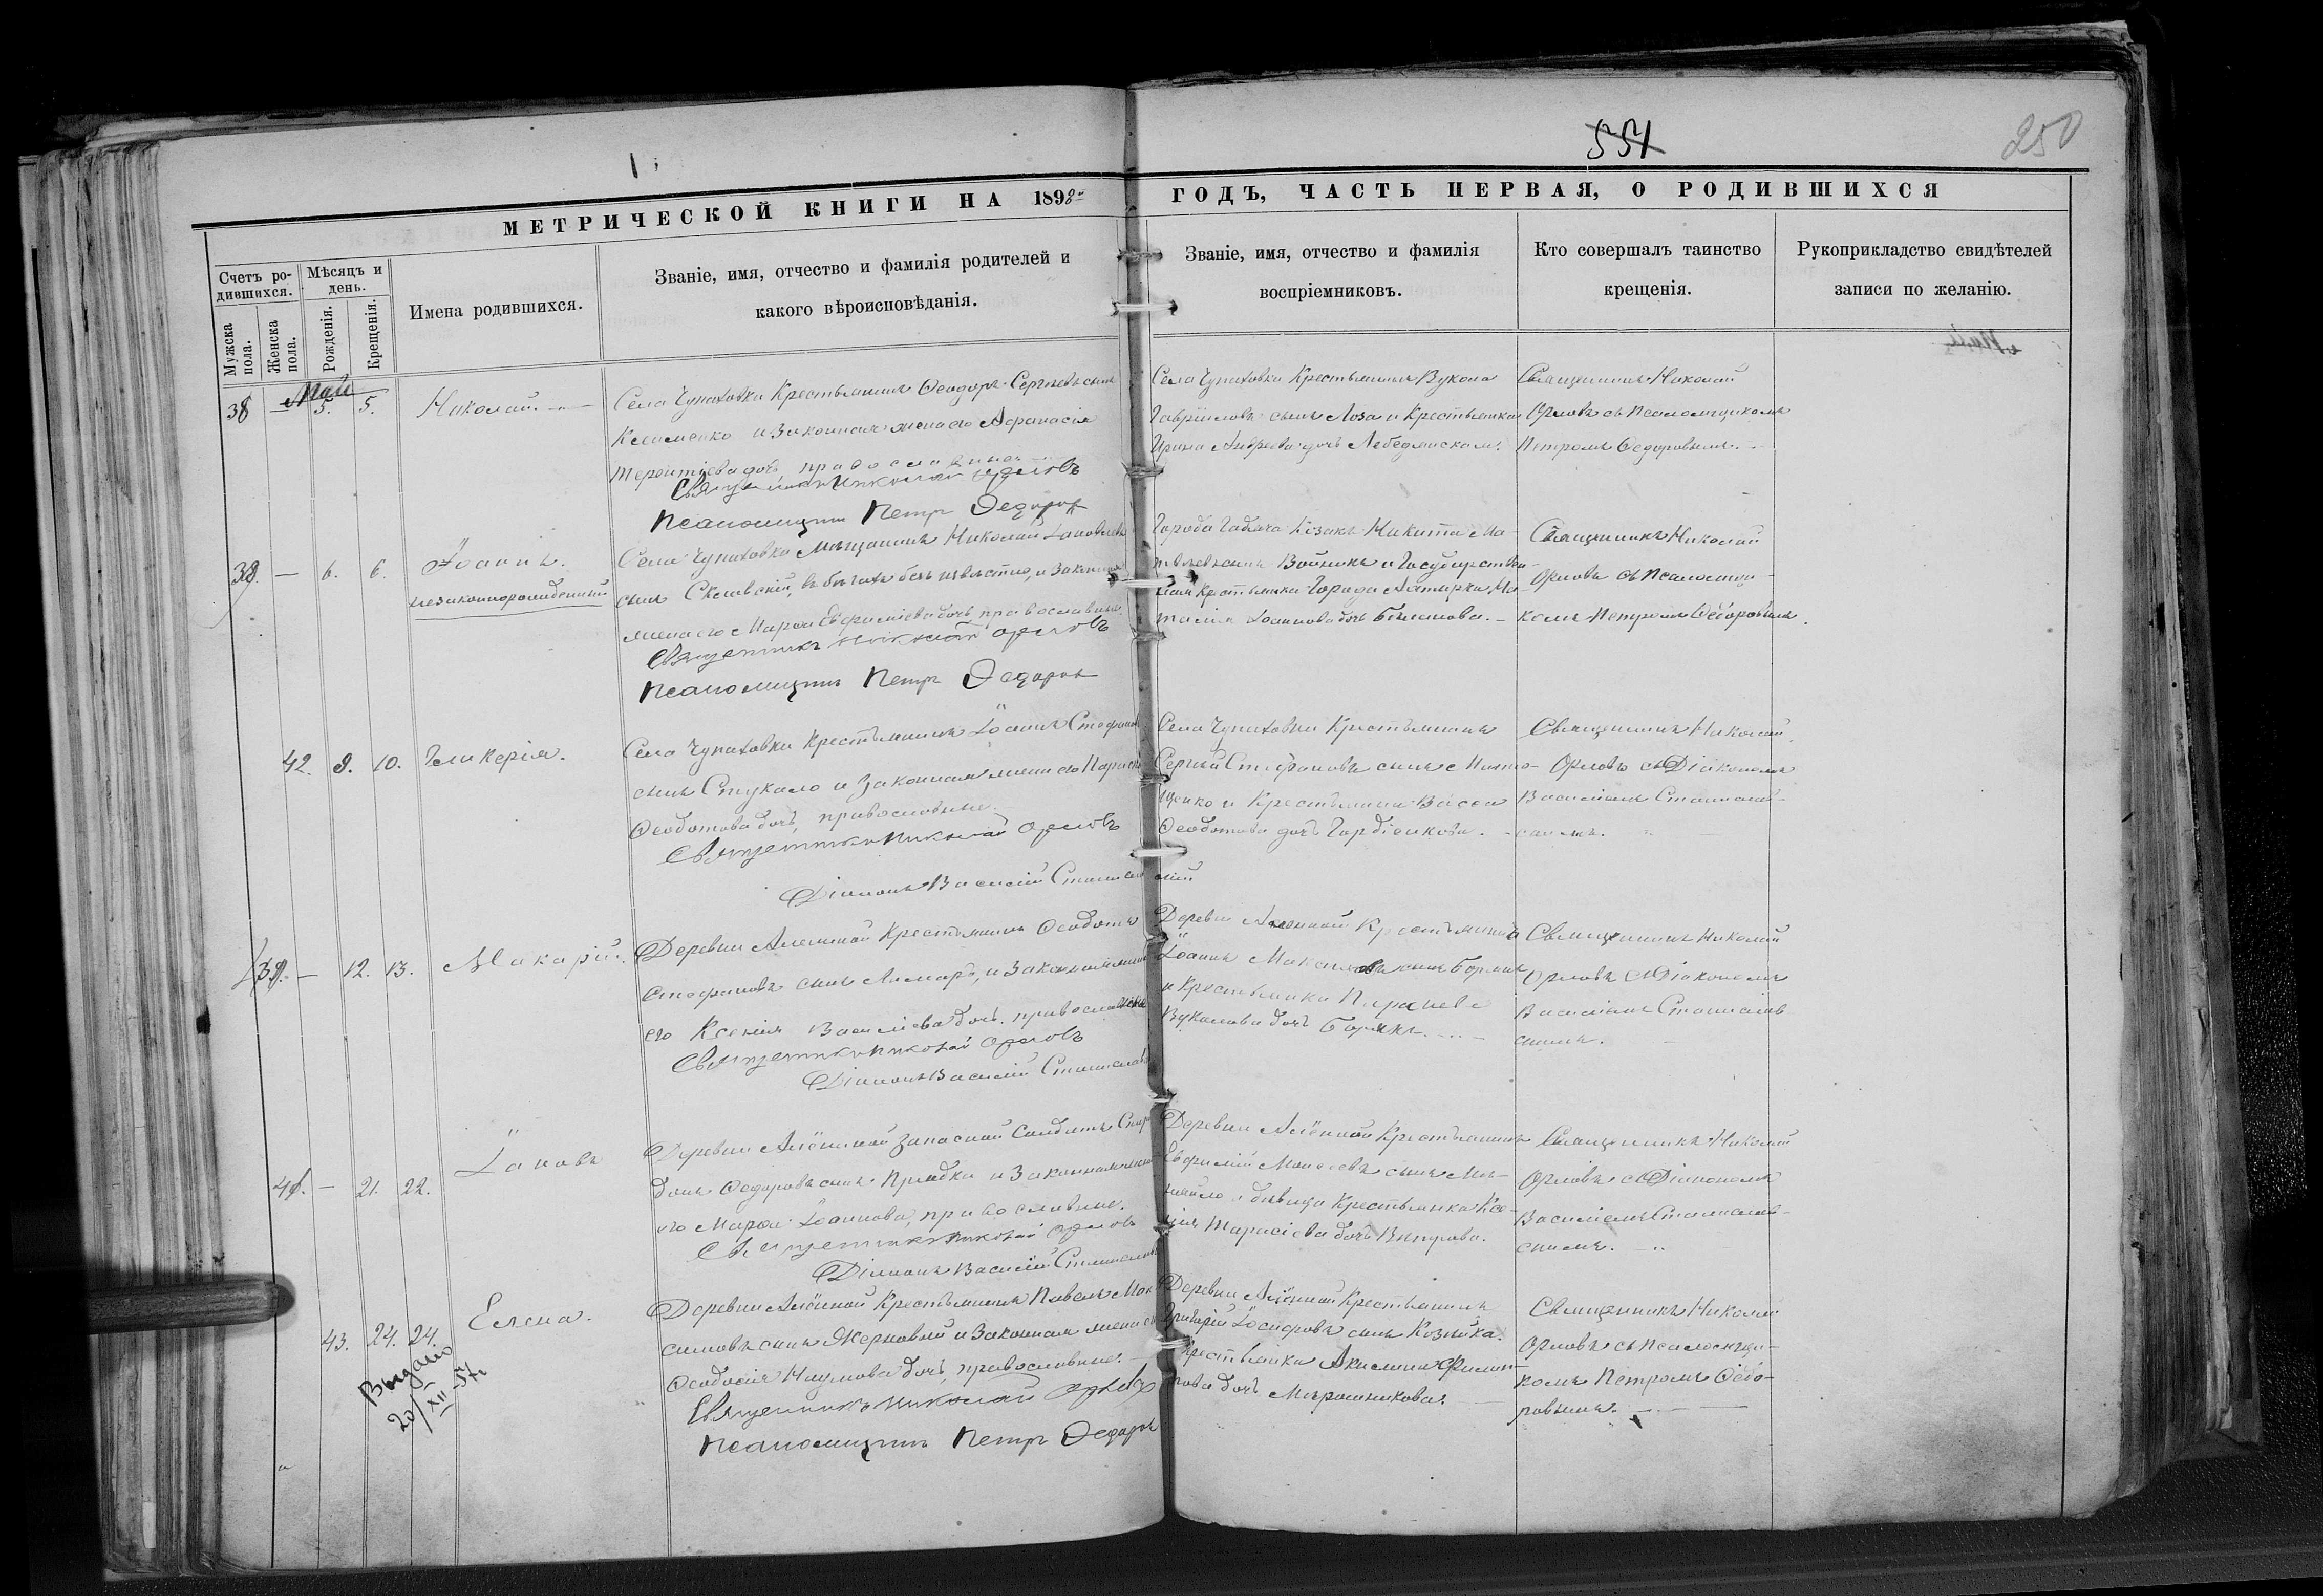 551
250
МЕТРИЧЕСКОЙ КНИГИ НА 1898 ГОДЪ, ЧАСТЬ ПЕРВАЯ, О РОДИВШИХСЯ
Счетъ ро-
дившихся.
Мужска
пола.
Женска
пола.
Мѣсяцъ и
день.
Рожденія.
Крещенія.
Имена родившихся.
Званіе, имя, отчество и фамилія родителей и
какого вѣроисповѣданія.
Званіе, имя, отчество и фамилія
воспріемниковъ.
Кто совершалъ таинство
крещенія.
Рукоприкладство свидѣтелей
записи по желанію.
Май
38 — 5. 5. Николай.
Села Чупаховки Крестьянинъ Ѳеодоръ Сергѣевъ сынъ
Клименко и законная жена его Афанасія
Терентіева дочь, православные
Священникъ Николай Орловъ
Псаломщикъ Петръ Ѳедоровъ
Села Чупаховки Крестьянинъ Вукола
Гавріиловъ сынъ Лоза и Крестьянка
Ирина Андреева дочь Лебединская.
Священникъ Николай
Орловъ съ Псаломщикомъ
Петромъ Ѳедоровымъ.
— 6. 6. Іоаннъ.
незаконнорожденный
Села Чупаховки Мѣщанинъ Николай Іаковлевъ
сынъ въ бѣгахъ безъ извѣстно, и законная
жена его Марѳа Евфиміева дочь, православные.
Священникъ Николай Орловъ
Псаломщикъ Петръ Ѳедоровъ
Города Гадяча Козакъ Никита Ма-
твѣевъ сынъ Войникъ и Государствен-
ная Крестьянка Города Ахтырки На-
талія Іоаннова дочь
Священникъ Николай
Орловъ съ Псаломщи-
комъ Петромъ Ѳедоровымъ.
42. 9. 10. Гликерія.
Села Чупаховки Крестьянинъ Іоаннъ Стефановъ
сынъ Стукало и законная жена его Параскева
Ѳеодотова дочь, православные.
Священникъ Николай Орловъ
Діаконъ Василій Станиславскій
Села Чупаховки Крестьянинъ
Сергѣй Стефановъ сынъ
и Крестьянка Васса
Ѳеодотова дочь Гордіенкова.
Священникъ Николай
Орловъ съ Діакономъ
Василіемъ Станислав-
скимъ.
39. — 12. 13. Макарій.
Деревни Алешной Крестьянинъ Ѳеодотъ
Стефановъ сынъ Лимаръ, и законная жена
его Ксенія Василіева дочь, православные
Священникъ Николай Орловъ
Діаконъ Василій Станиславскій
Деревни Алешной Крестьянинъ
Іоаннъ Максимовъ сынъ Борякъ
и Крестьянка Параскева
Вуколова дочь Борякъ.
Священникъ Николай
Орловъ съ Діакономъ
Василіемъ Станислав-
скимъ.
— 21. 22. Іаковъ
Деревни Алёшной запасной Солдатъ Спири-
донъ Ѳедоровъ сынъ Прядка и законная жена
его Марѳа Іоаннова, православные.
Священникъ Николай Орловъ
Діаконъ Василій Станиславскій
Деревни Алёшной Крестьянинъ
Евфимій Моисеевъ сынъ Ми-
хайло и дѣвица Крестьянка Ксе-
нія Тарасіева дочь
Священникъ Николай
Орловъ съ Діакономъ
Василіемъ Станислав-
скимъ.
43. 24. 24. Елена.
Выдано
20/XII-57г
Деревни Алёшной Крестьянинъ Павелъ Мак-
симовъ сынъ Жерновый и законная жена его
Ѳеодосія Наумова дочь, православные.
Священникъ Николай Орловъ
Псаломщикъ Петръ Ѳедоровъ
Деревни Алёшной Крестьянинъ
Григорій Іосифовъ сынъ
Крестьянка Акилина Филип-
пова дочь Мирошникова.
Священникъ Николай
Орловъ съ Псаломщи-
комъ Петромъ Ѳедо-
ровымъ.